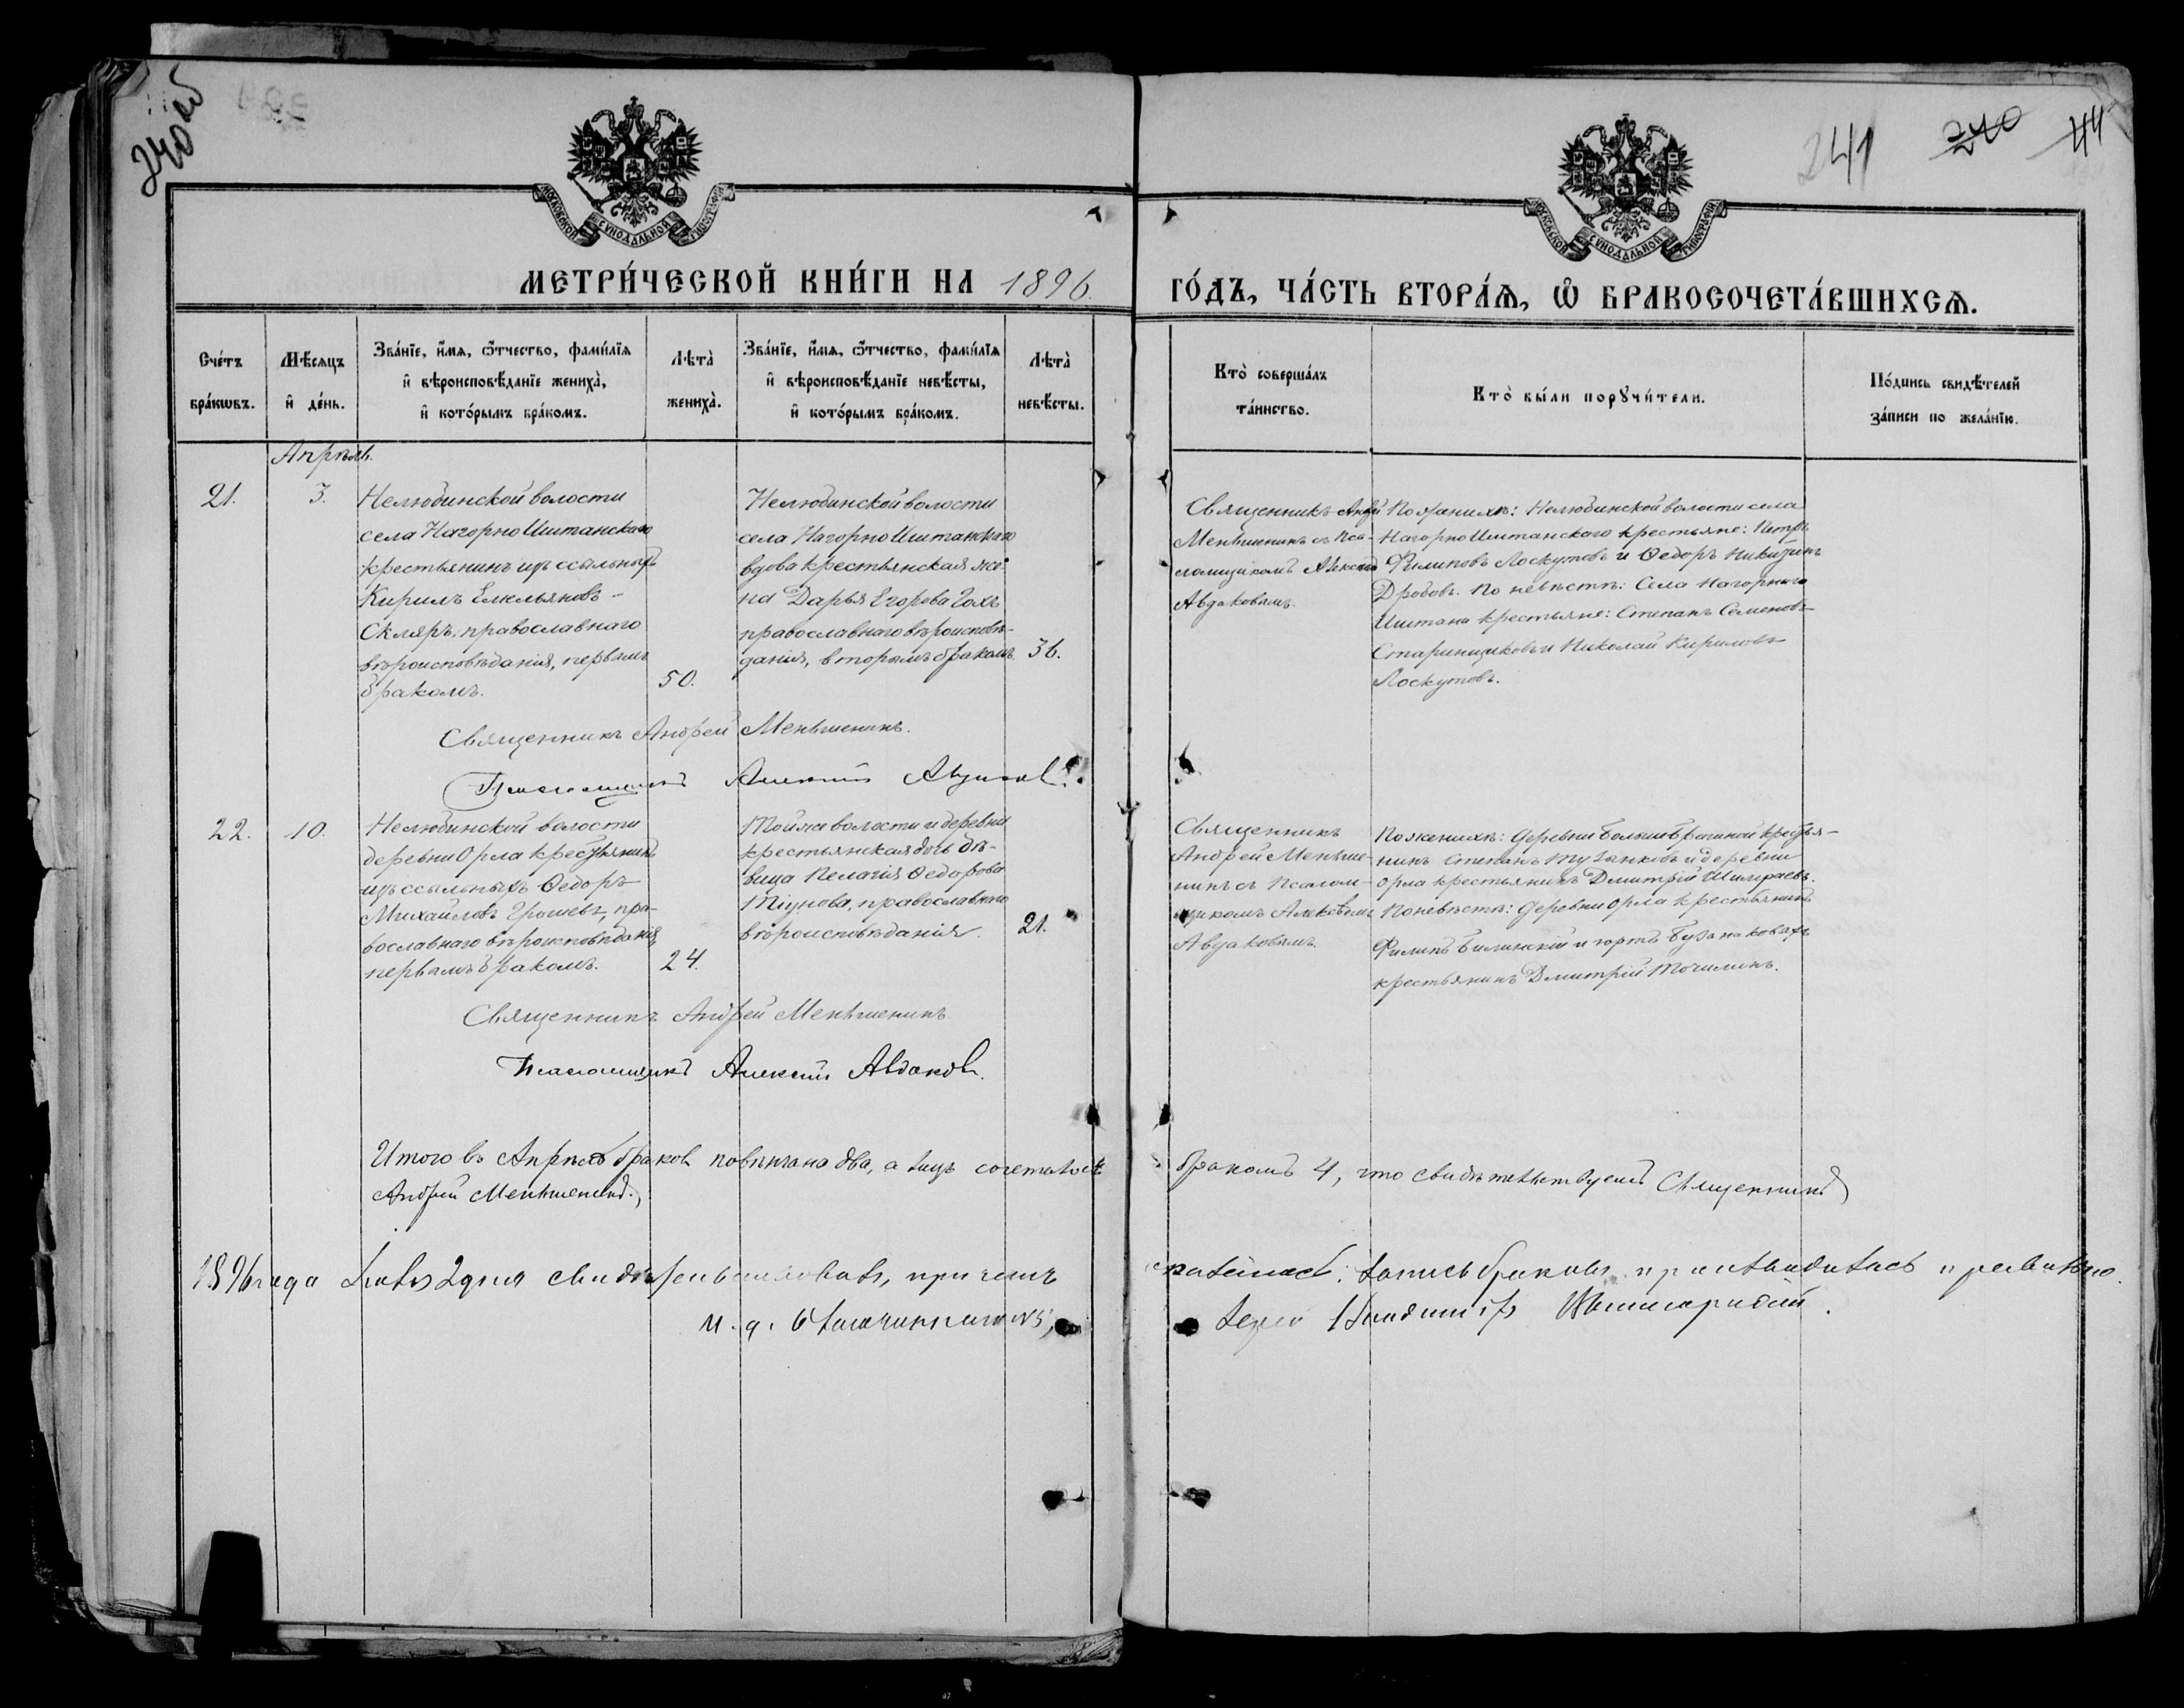 240 об
241 240 44
МОСКОВСКОЙ СѴНОДАЛЬНОЙ ТИПОГРАФІИ
МОСКОВСКОЙ СѴНОДАЛЬНОЙ ТИПОГРАФІИ
МЕТРИ́ЧЕСКОЙ КНИ́ГИ НА 1896. ГО́ДЪ, ЧА́СТЬ ВТОРА́Ѧ, Ѡ БРАКОСОЧЕТА́ВШИХСѦ.
Сче́тъ
бра́кѡвъ.
Мѣ́сяцъ
и҆ де́нь.
Зва́нїе, и҆́мѧ, ѻ҆́тчество, фами́лїѧ
и҆ вѣроисповѣ́данїе жениха̀,
и҆ кото́рымъ бра́комъ.
Лѣта̀
жениха̀.
Зва́нїе, и҆́мѧ, ѻ҆́тчество, фами́лїѧ
и҆ вѣроисповѣ́данїе невѣ́сты,
и҆ кото́рымъ бра́комъ.
Лѣта̀
невѣ́сты.
Кто̀ соверша́лъ
та́инство.
Кто̀ бы́ли порꙋчи́тели.
По́дпись свидѣ́телей
за́писи по жела́нїю.
Апрѣль.
21.
3.
Нелюбинской волости
села Нагорно Иштанскаго
крестьянинъ изъ ссыльныхъ
Кирилъ Емельяновъ
Скляръ, православнаго
вѣроисповѣданія, первымъ
бракомъ.
50.
Нелюбинской волости
села Нагорно Иштанскаго
вдова крестьянская же-
на Дарья Егорова Гохъ
православнаго вѣроисповѣ-
данія, вторымъ бракомъ.
36.
Священникъ Андрей
Меньшенинъ съ пса-
ломщикомъ Алексѣемъ
Авдаковымъ.
По женихѣ: Нелюбинской волости села
Нагорно Иштанскаго крестьяне: Петръ
Филиповъ Лоскутовъ и Ѳедоръ Никитинъ
Дробовъ. По невѣстѣ: Села Нагорнаго
Иштана крестьяне: Степанъ Семеновъ
Старинщиковъ и Николай Кириловъ
Лоскутовъ.
Священникъ Андрей Меньшенинъ.
Псаломщикъ Алексѣй Авдаковъ.
22.
10.
Нелюбинской волости
деревни Орла крестьянинъ
изъ ссыльныхъ Ѳедоръ
Михайловъ Грошевъ, пра-
вославнаго вѣроисповѣданія,
первымъ бракомъ.
24.
Той же волости и деревни
крестьянская дочь дѣ-
вица Пелагія Ѳедорова
Тіунова, православнаго
вѣроисповѣданія.
21.
Священникъ
Андрей Меньше-
нинъ съ псалом-
щикомъ Алексѣемъ
Авдаковымъ.
По женихѣ: Деревни Больше-Брагиной крестья-
нинъ Степанъ и деревни
Орла крестьянинъ Дмитрій
По невѣстѣ: Деревни Орла крестьянинъ
Филипъ Билинскій и юртъ
крестьянинъ Дмитрій Точилинъ.
Священникъ Андрей Меньшенинъ.
Псаломщикъ Алексѣй Авдаковъ.
Итого въ Апрѣлѣ браковъ повѣнчано два, а лицъ сочеталось бракомъ 4, что свидѣтельствуемъ Священникъ
Андрей Меньшенинъ.
1896 года 2 дня свидѣтельствовалъ, при чемъ запись браковъ производилась правильно.
и. д. Благочиннаго №3,